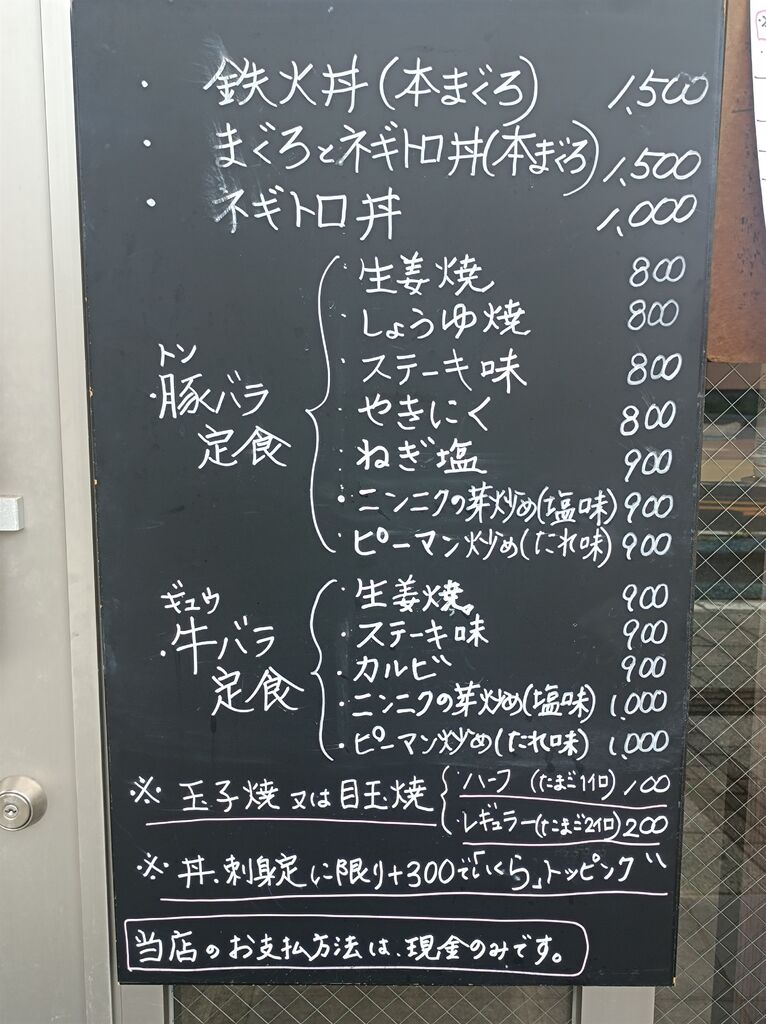 ・鉄火丼(本まぐろ) 1,500
・まぐろとネギトロ丼(本まぐろ) 1,500
・ネギトロ丼 1,000
トン
・豚バラ
定食
・生姜焼 800
・しょうゆ焼 800
・ステーキ味 800
・やきにく 800
・ねぎ塩 900
・ニンニクの芽炒め(塩味) 900
・ピーマン炒め(たれ味) 900
ギュウ
・牛バラ
定食
・生姜焼 900
・ステーキ味 900
・カルビ 900
・ニンニクの芽炒め(塩味) 1,000
・ピーマン炒め(たれ味) 1,000
※ 玉子焼又は目玉焼
・ハーフ(たまご1イ口) 100
・レギュラー(たまご2イ口) 200
※ 丼、刺身定に限り+300で「いくら」トッピング
当店のお支払方法は、現金のみです。